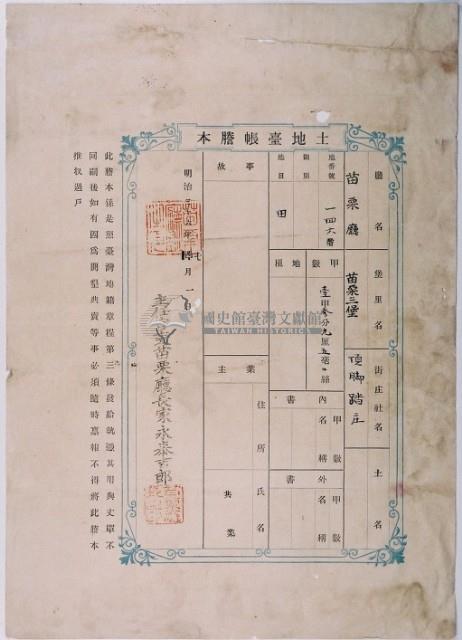 土地臺帳謄本
廳名
苗栗廳
堡里名
苗栗三堡
街庄社名
頂腳踏庄
土名
地番號
一四六番
則別
地目
田
事故
甲數
壹甲參分九厘五毫
地租
內書
甲數
名稱
外書
甲數
名稱
業主
住所
氏名
共業
明治三十五年七月一日
苗栗廳長家永泰吉郎
國史館臺灣文獻館
TAIWAN HISTORICA
此謄本係是照臺灣地籍章程第三條發給執憑其用與丈單不
同嗣後如有因為開墾典賣等事必須隨時稟報不得將此謄本
推收過戶